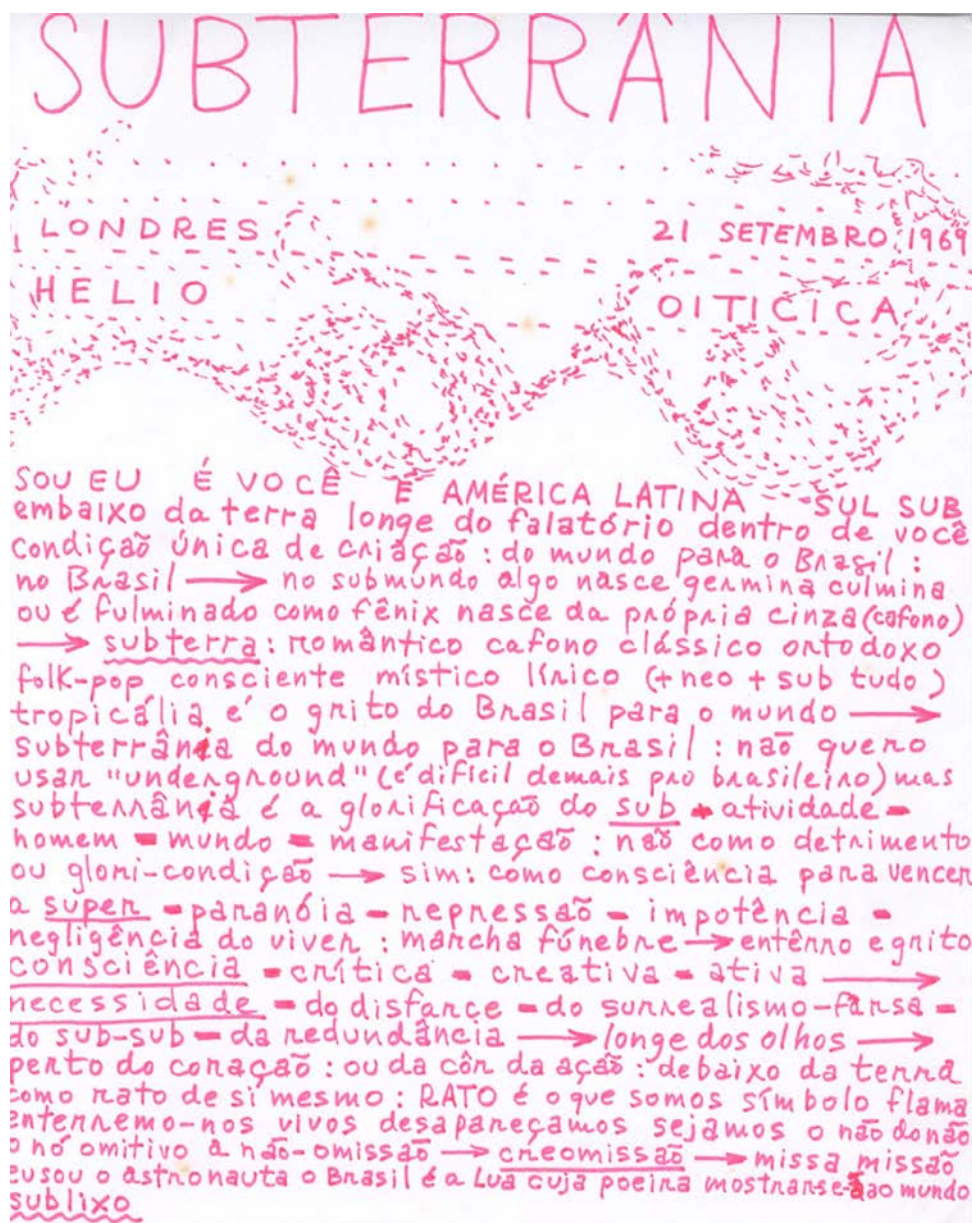 SUBTERRÂNIA
LONDRES 21 SETEMBRO 1969
HELIO OITICICA
SOU EU É VOCÊ É AMÉRICA LATINA SUL SUB
embaixo da terra longe do falatório dentro de você
condição única de criação : do mundo para o Brasil :
no Brasil → no submundo algo nasce germina culmina
ou é fulminado como fênix nasce da própria cinza (cafono)
→ subterra : romântico cafono clássico ortodoxo
folk-pop consciente místico lírico (+ neo + sub tudo)
tropicália é o grito do Brasil para o mundo →
subterrânia do mundo para o Brasil : não quero
usar "underground" (é difícil demais pro brasileiro) mas
subterrânia é a glorificação do sub - atividade -
homem - mundo - manifestação : não como detrimento
ou glori-condição → sim : como consciência para vencer
a super - paranóia - repressão - impotência -
negligência do viver : marcha fúnebre → entêrro e grito
consciência - crítica - creativa - ativa →
necessidade - do disfarce - do surrealismo-farsa -
do sub-sub - da redundância → longe dos olhos →
perto do coração : ou da côr da ação : debaixo da terra
como rato de si mesmo : RATO é o que somos símbolo flama
enterremo-nos vivos desapareçamos sejamos o não do não
o nó omitivo à não-omissão → creomissão → missa missão
eu sou o astronauta o Brasil é a Lua cuja poeira mostrar-se-á ao mundo
sublixo